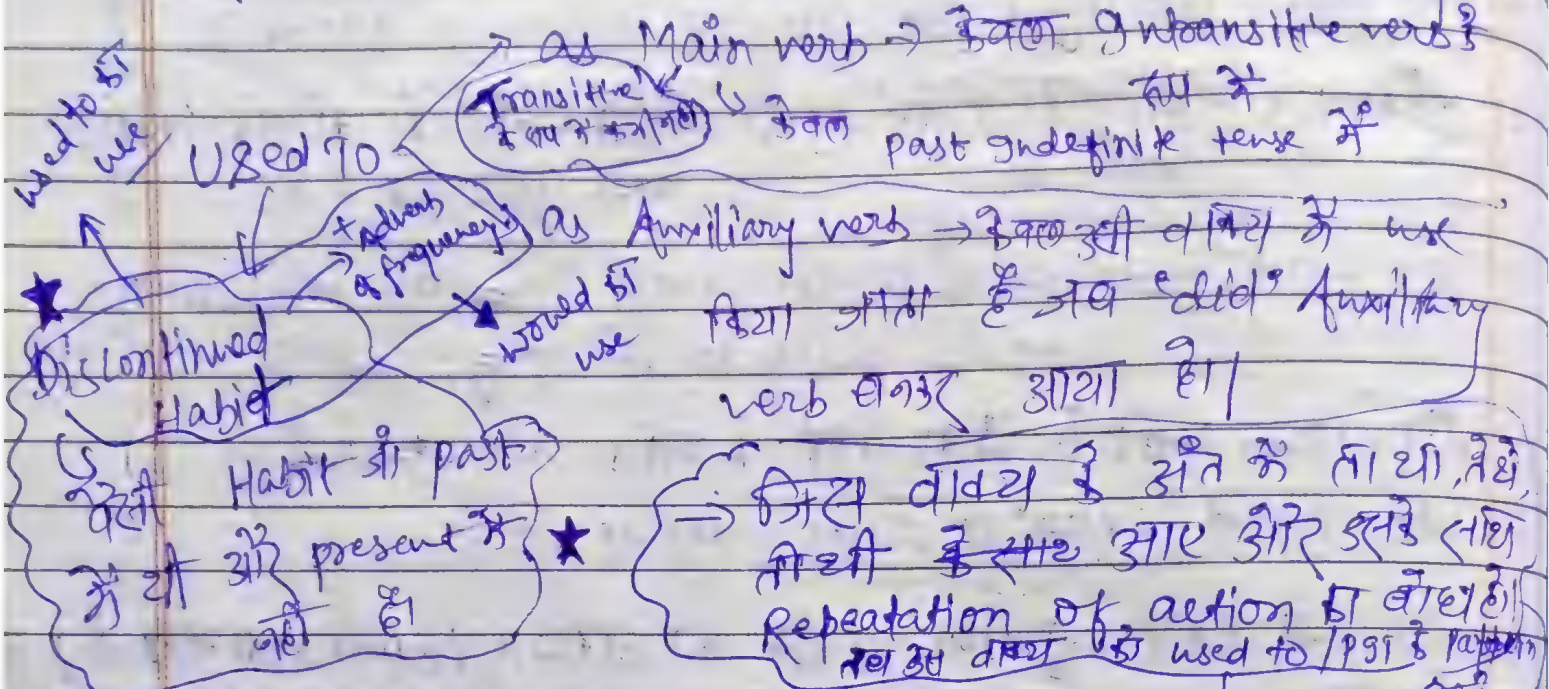 as Main verb → केवल Intransitive verb के
रूप में
Transitive
के रूप में कभी नहीं
केवल past Indefinite tense में
used to का
use
Used to
+ Adverb
of frequency
as Auxiliary verb → केवल उसी वाक्य में use
किया जाता है जब "did" Auxiliary
verb बनकर आया हो।
would का
use
Discontinued
Habit
वैसी Habit जो past
में थी और present में
नहीं है।
→ जिस वाक्य के अंत में ता था, ते थे,
ती थी के साथ आए और इसके साथ
Repeatation of action का बोध हो।
तब उस वाक्य को used to / PSI के